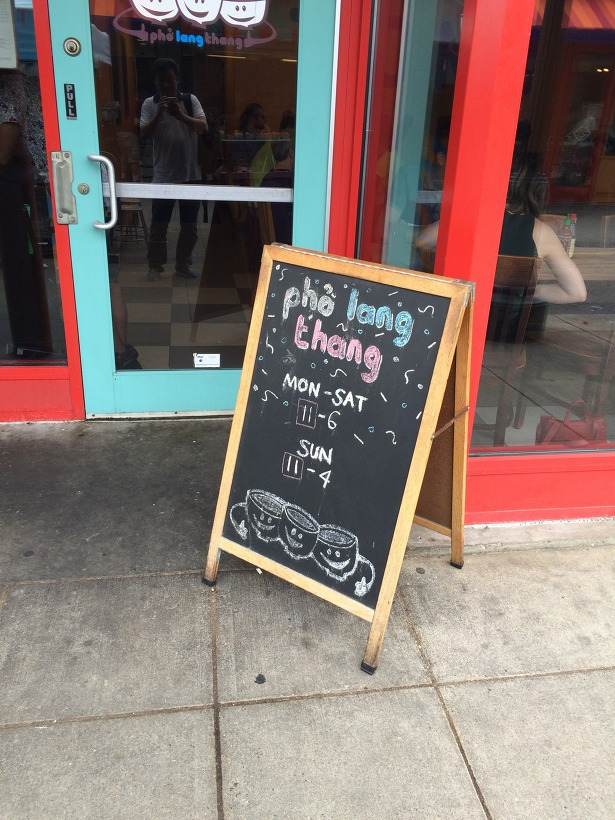 phở lang thang
PULL
phở lang
thang
MON-SAT
11-6
SUN
11-4